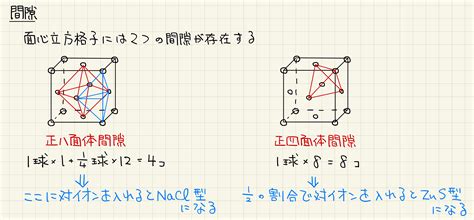 間隙
面心立方格子には2つの間隙が存在する
正八面体間隙
1球×1+1/4球×12=4コ
ここに対イオンを入れるとNaCl型
になる
正四面体間隙
1球×8=8コ
1/2の割合で対イオンを入れるとZnS型
になる